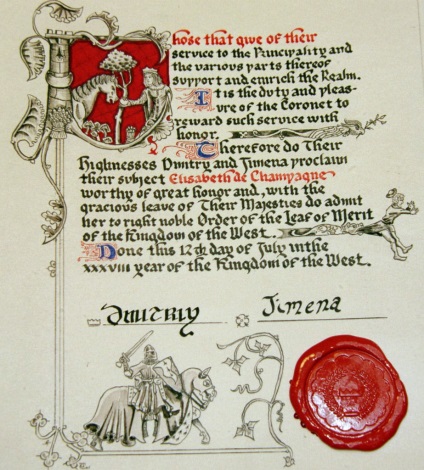 Those that give of their
service to the Principality and
the various parts thereof
support and enrich the Realm.
It is the duty and pleas-
ure of the Coronet to
reward such service with
honor.
Therefore do Their
Highnesses Dmitry and Jimena proclaim
their subject Elisabeth de Champagne
worthy of great honor and, with the
gracious leave of Their Majesties do admit
her to right noble Order of the Leaf of Merit
of the Kingdom of the West.
Done this 12th day of July in the
xxxviii year of the Kingdom of the West.
Dmitriy Jimena